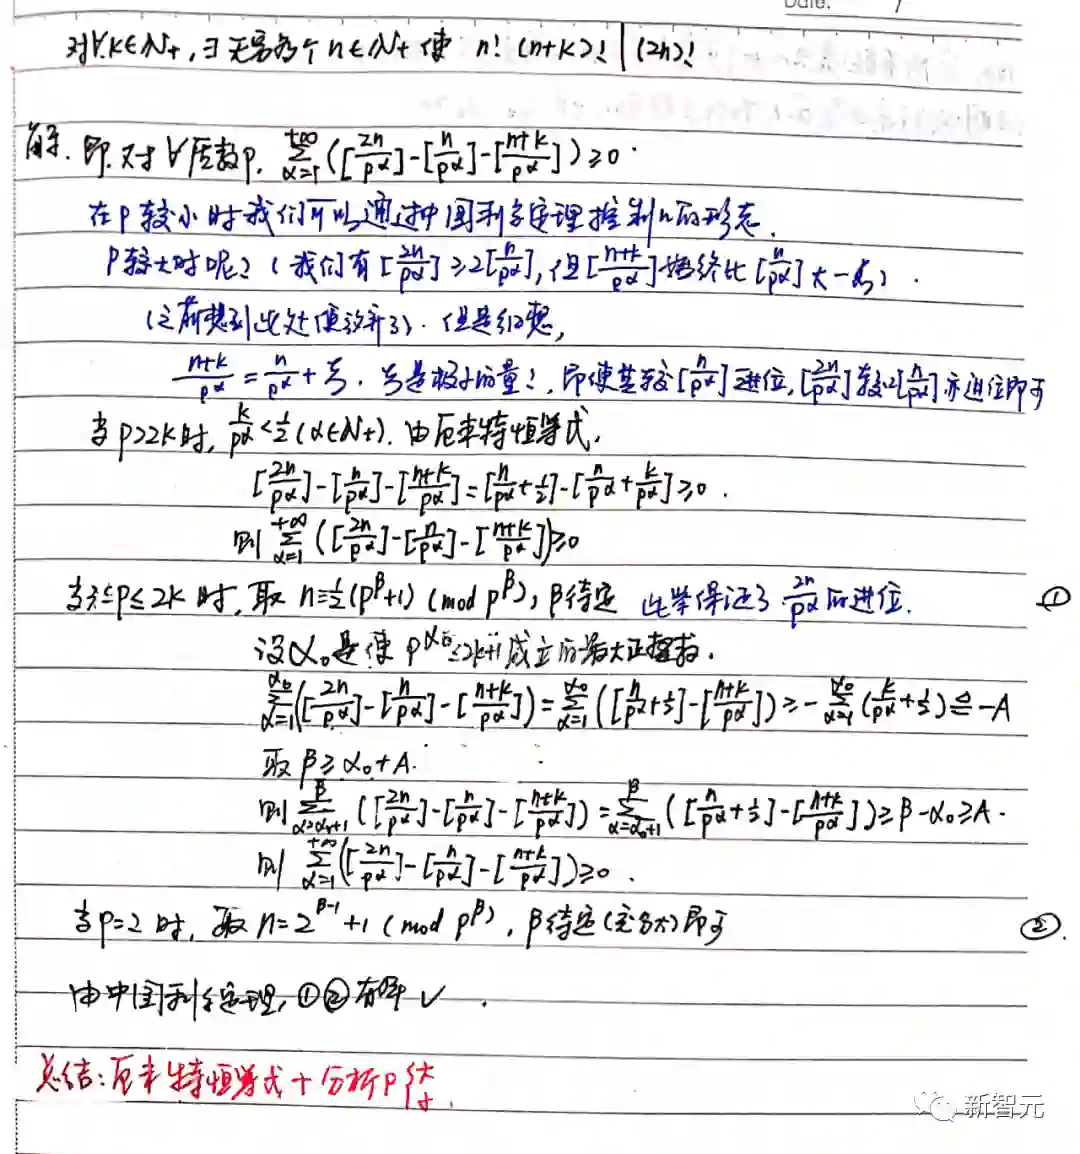 Date.
对∀k∈N₊,∃无穷多个n∈N₊使 n!(n+k)! | (2n)!
解. 即对∀质数p, ∑_{α=1}^{+∞}([2n/p^α]-[n/p^α]-[(n+k)/p^α])≥0.
在p较小时我们可以通过中国剩余定理控制n的形态.
p较大时呢?(我们有[2n/p^α]≥2[n/p^α],但[(n+k)/p^α]始终比[n/p^α]大一些).
(之前想到此处便放弃了).但是细想,
(n+k)/p^α = n/p^α + 是极小的量!,即使其较[n/p^α]进位,[2n/p^α]较2[n/p^α]亦进位即可
当p>2k时, k/p^α<1/2(α∈N₊).由厄米特恒等式,
[2n/p^α]-[n/p^α]-[(n+k)/p^α]=[n/p^α+1/2]-[n/p^α+k/p^α]≥0.
则∑_{α=1}^{+∞}([2n/p^α]-[n/p^α]-[(n+k)/p^α])≥0
当3≤p≤2k时,取 n≡1/2(p^β+1) (mod p^β),β待定 此举保证了2n/p^α的进位. ①
设α₀是使p^{α₀}≤2k+1成立的最大正整数.
∑_{α=1}^{α₀}([2n/p^α]-[n/p^α]-[(n+k)/p^α])=∑_{α=1}^{α₀}([n/p^α+1/2]-[(n+k)/p^α])≥-∑_{α=1}^{α₀}(k/p^α+1/2)≜-A
取β≥α₀+A.
则∑_{α=α₀+1}^{β}([2n/p^α]-[n/p^α]-[(n+k)/p^α])=∑_{α=α₀+1}^{β}([n/p^α+1/2]-[(n+k)/p^α])≥β-α₀≥A.
则 ∑_{α=1}^{+∞}([2n/p^α]-[n/p^α]-[(n+k)/p^α])≥0.
当p=2时,取n=2^{β-1}+1(mod p^β),β待定(充分大)即可 ②.
由中国剩余定理,①②有解√.
总结:厄米特恒等式+分析p 大小.
新智元